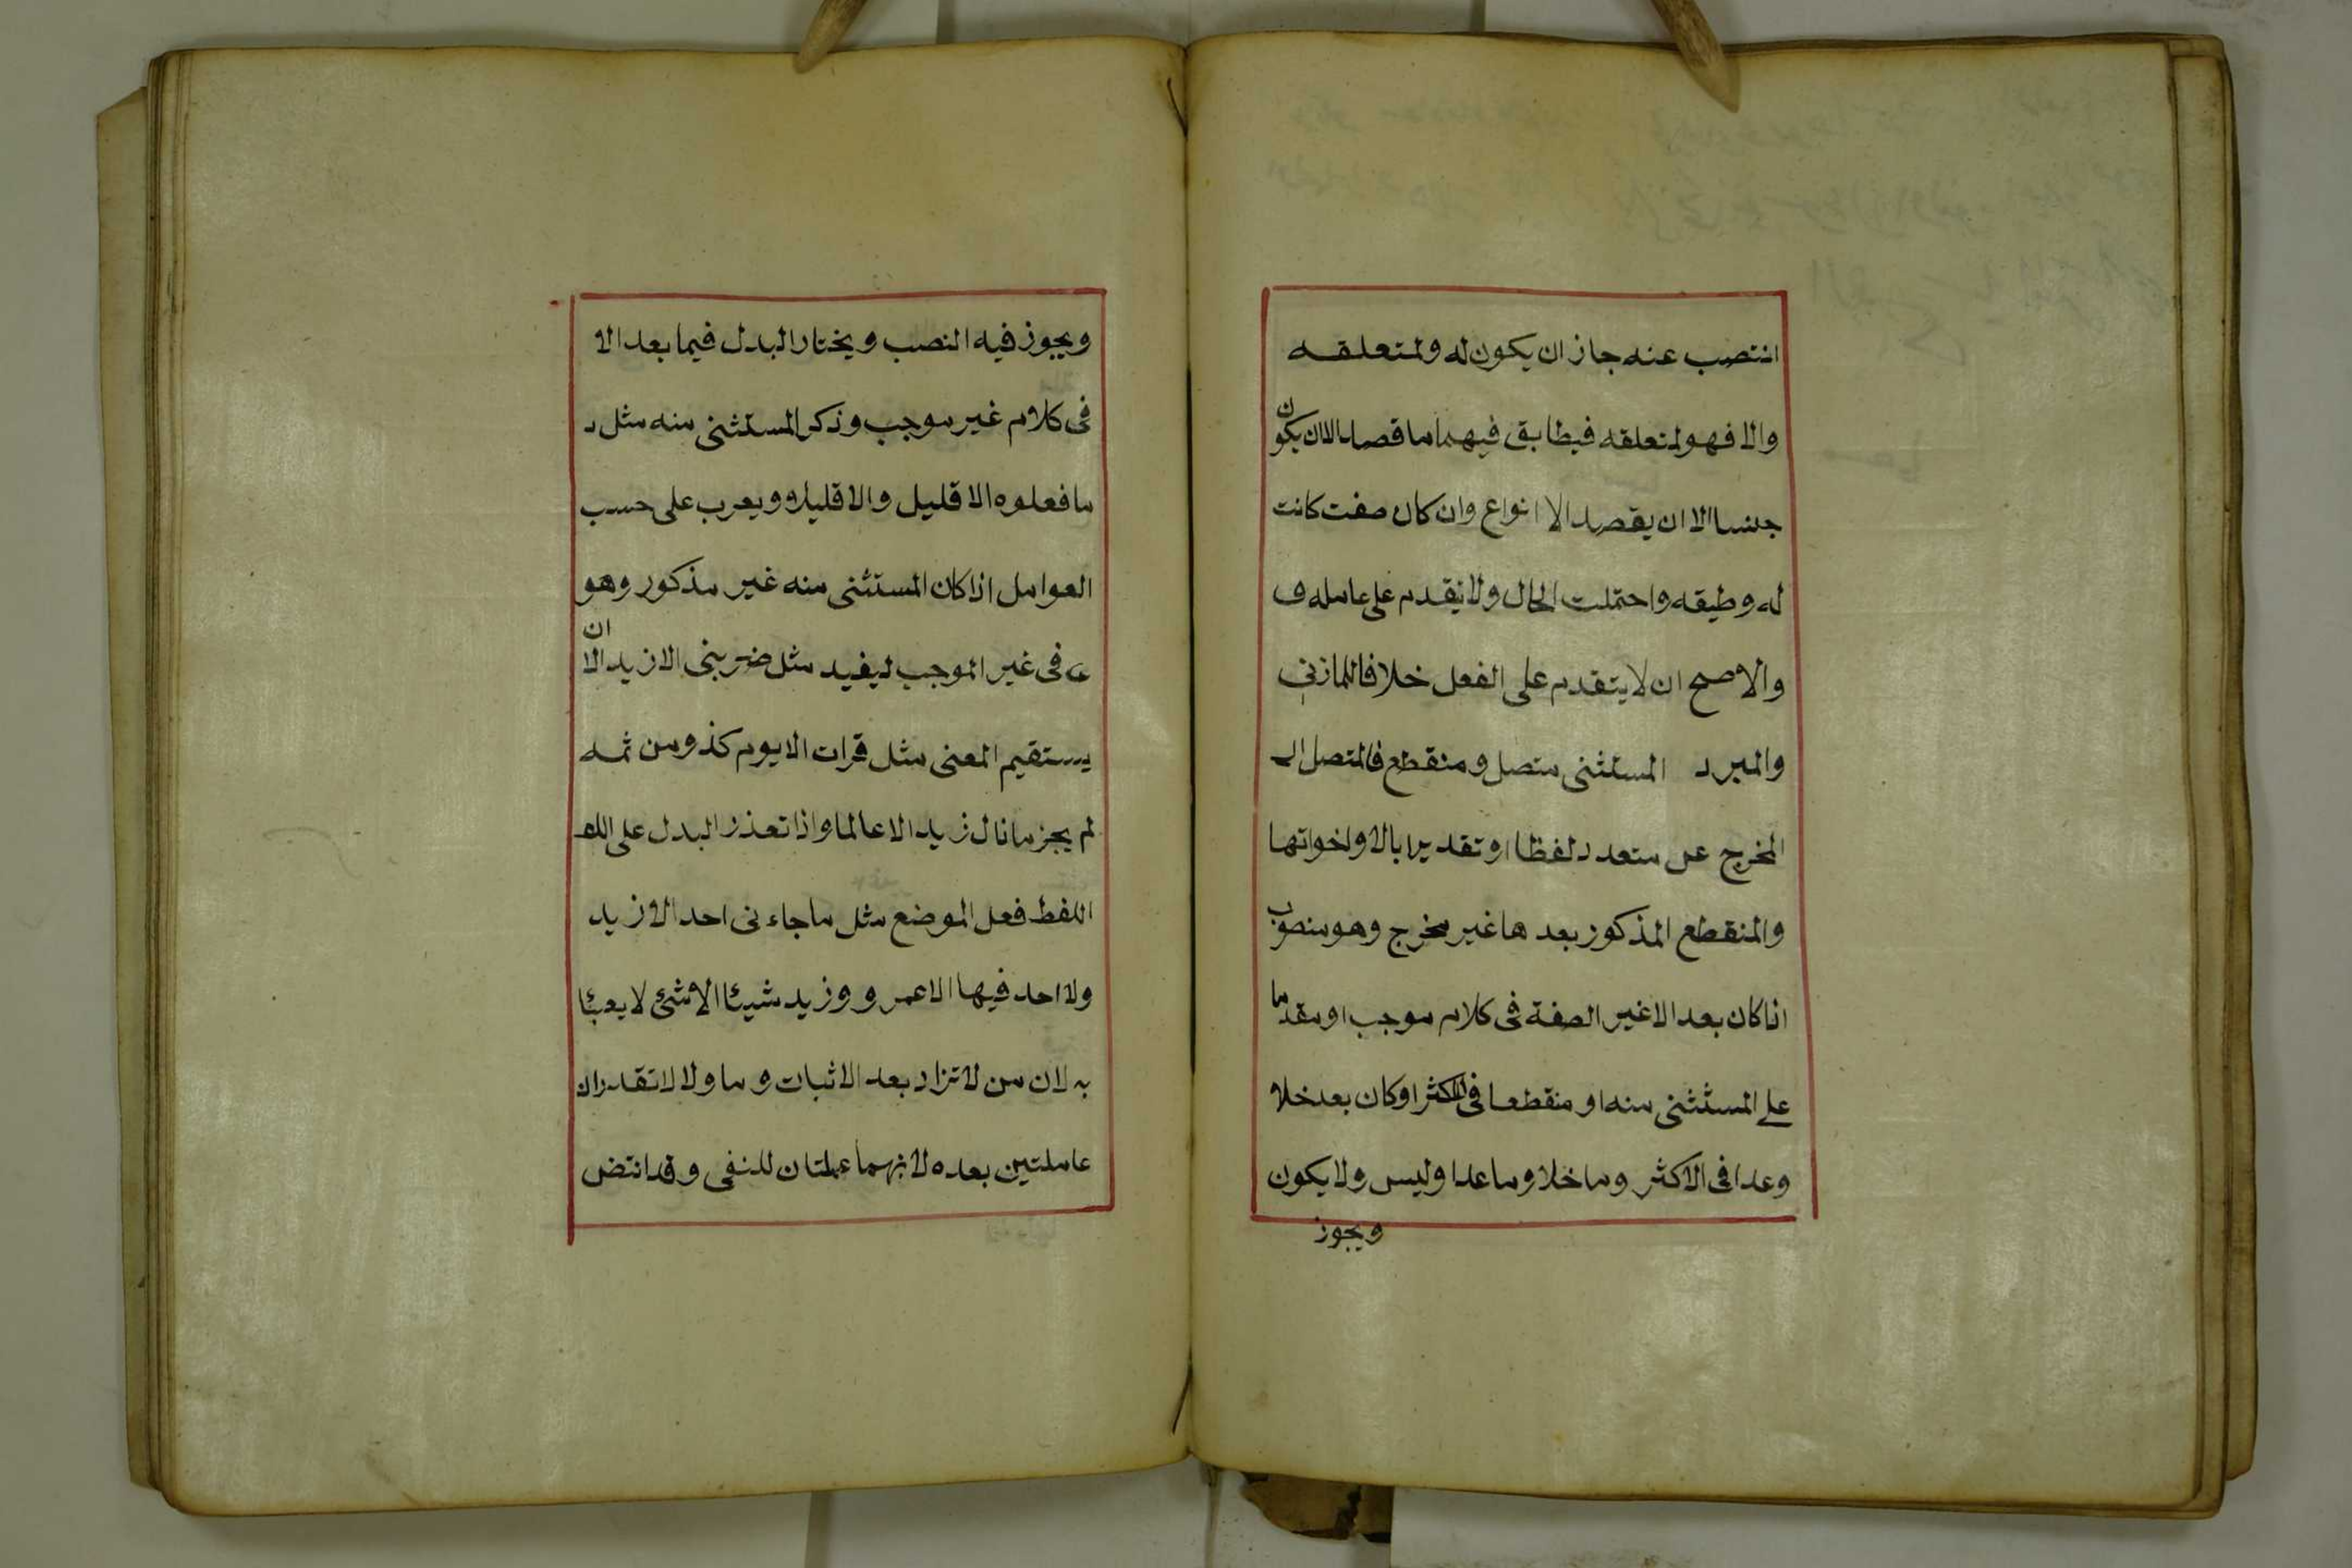 انتصب عنه جاز ان يكون له ولمتعلقه
والا فهو لمتعلقه فيطابق فيهما ما قصد الا ان يكون
جنسا الا ان يقصد الا انواع وان كان صفت كانت
له وطيقه واحتملت الحال ولا يتقدم على عامله و
والاصح ان لا يتقدم على الفعل خلافا للمازني
والمبرد المستثنى متصل ومنقطع فالمتصل ال
المخرج عن متعدد لفظا او تقديرا بالا واخواتها
والمنقطع المذكور بعدها غير مخرج وهو منصوب
اذا كان بعد الا غير الصفة فى كلام موجب او مقدما
على المستثنى منه او منقطعا فى الاكثر او كان بعد خلا
وعدا فى الاكثر وما خلا وما عدا وليس ولا يكون
ويجوز
ويجوز فيه النصب ويختار البدل فيما بعد الا
فى كلام غير موجب وذكر المستثنى منه مثل
ما فعلوه الا قليل والا قليلا ويعرب على حسب
العوامل اذا كان المستثنى منه غير مذكور وهو
فى غير الموجب ليفيد مثل ضربنى الا زيد الا ان
يستقيم المعنى مثل قرات الا يوم كذ ومن ثمه
لم يجز ما نال زيد الا عالما واذا تعذر البدل على اللف
اللفظ فعل الموضع مثل ما جاءنى احد الا زيد
ولا احد فيها الا عمرو وزيد شيئا الا شئ لا يعبئا
به لان من لا تزاد بعد الاثبات وما ولا لا تقدران
عاملتين بعده لانهما عملتان للنفى وقد انتض